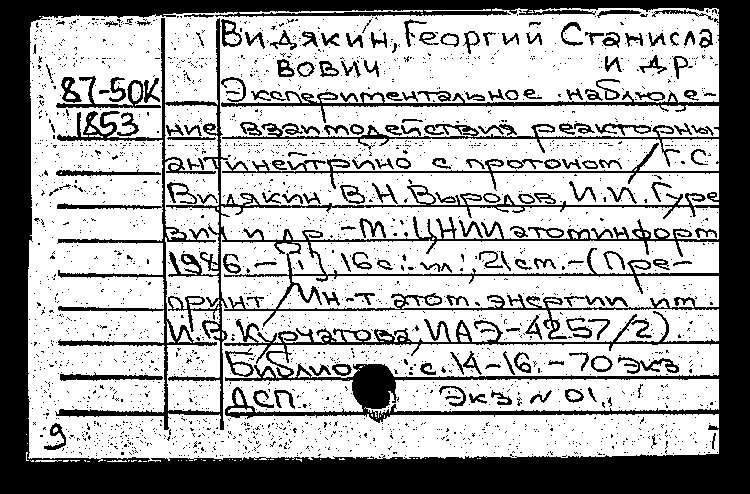 Видякин, Георгий Станисла
вович и др
87-50К Экспериментальное наблюде-
1853 ние взаимодействия реакторны
антинейтрино с протоном / Г.С.
Видякин, В.Н. Выродов, И.И. Гуре
вич и др. -М.: ЦНИИатоминформ
1986. - [1], 16 с.: ил.; 21 см. - (Пре-
принт / Ин-т атом. энергии им.
И.В. Курчатова; ИАЭ-4257/2).
с. 14-16. - 70 экз.
ДСП. Экз. N 01.
9